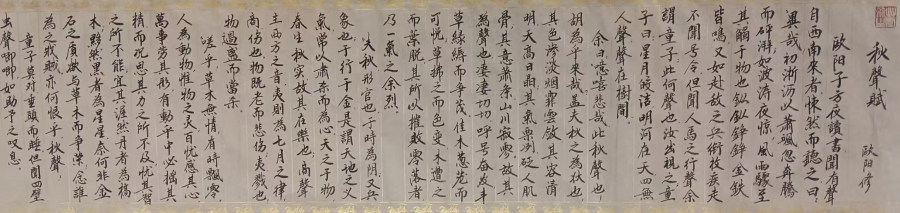 秋聲賦
欧陽修
欧陽子方夜讀書聞有聲
自西南來者悚然而聽之曰
異哉初淅沥以蕭颯忽奔騰
而砰湃如波濤夜惊風雨驟至
其觸于物也鏦鏦錚錚金鉄
皆鳴又如赴敌之兵銜枚疾走
不聞号令但聞人馬之行聲余
謂童子此何聲也汝出視之童
子曰星月皎洁明河在天四無
人聲聲在樹間
余曰噫嘻悲哉此秋聲也
胡為乎來哉蓋夫秋之為狀也
其色惨淡烟霏雲斂其容清
明天高日晶其氣栗冽砭人肌
骨其意蕭條山川寂寥故其
為聲也凄凄切切呼号奋发丰
草綠縟而爭茂佳木葱蘢而
可悦草拂之而色变木遭之
而葉脱其所以摧敗零落者
乃一氣之余烈
夫秋刑官也于時為阴又兵
象也于行于金是謂天地之义
氣常以肃杀而為心天之于物
春生秋实故其在樂也商聲
主西方之音夷則為七月之律
商伤也物既老而悲伤夷戮也
物過盛而當杀
嗟乎草木無情有時飄零
人為動物惟物之灵百忧感其心
萬事勞其形有動乎中必摇其
精而况思其力之所不及忧其智
之所不能宜其渥然丹者為槁
木黟然黑者為星星奈何非金
石之质欲与草木而爭榮念誰
為之戕賊亦何恨乎秋聲
童子莫對垂頭而睡但聞四壁
虫聲唧唧如助予之叹息